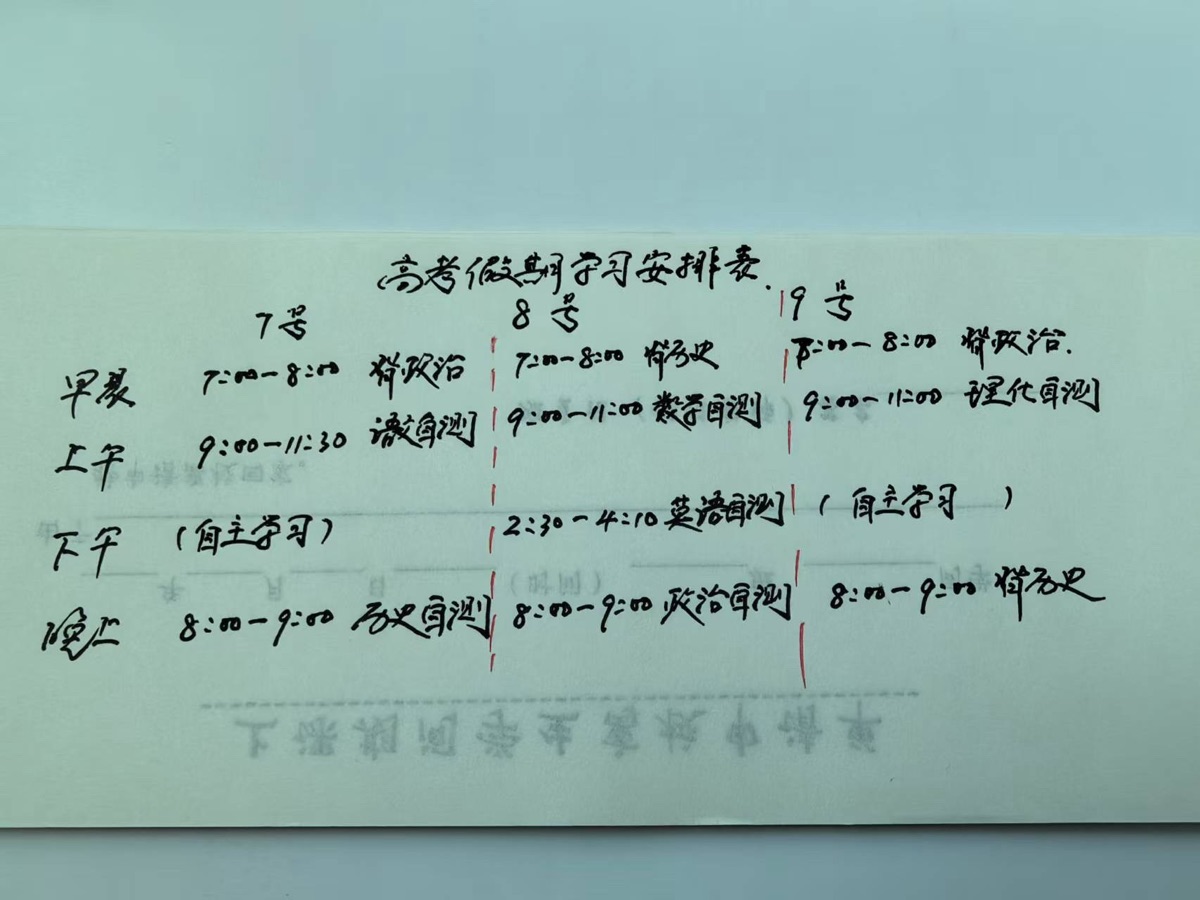 高考假期学习安排表.
7号 8号 9号
早晨 7:00-8:00 背政治 7:00-8:00 背历史 7:00-8:00 背政治.
上午 9:00-11:30 语文自测 9:00-11:00 数学自测 9:00-11:00 理化自测
下午 (自主学习) 2:30-4:10 英语自测 (自主学习)
晚上 8:00-9:00 历史自测 8:00-9:00 政治自测 8:00-9:00 背历史
上课期间学生离校申请单